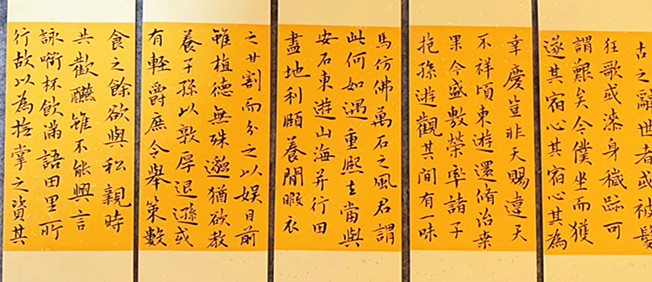 古之辭世者或被髮
狂歌或漆身穢跡可
謂艱矣今僕坐而獲
遂其宿心其宿心其為
幸慶豈非天賜違天
不祥頃東遊還脩治桒
果今盛敷榮率諸子
抱孫遊觀其間有一味
之甘割而分之以娱目前
雖植德無殊邈猶欲教
養子孫以敦厚退遜或
有輕爵庶令舉策數
馬仿佛萬石之風君謂
此何如遇重熙去當與
安石東遊山海并行田
盡地利頤養閒暇衣
食之餘欲與私親時
共歡醼雖不能興言
詠銜杯飲滿語田里所
行故以為撫掌之資其